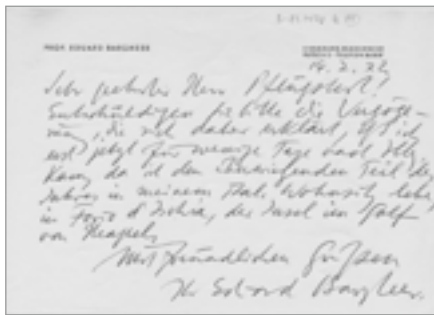 PROF. EDUARD BARGHEER
14. 2. 72
Sehr geehrter Herr Pflugbeil!
Entschuldigen Sie bitte die Verzöge-
rung, die sich daher erklärt, daß ich
erst jetzt für wenige Tage nach
kam, da ich den überwiegenden Teil des
Jahres in meinem Ital. Wohnsitz lebe,
in Forio d'Ischia, der Insel im Golf
von Neapel,
Mit freundlichen Grüßen
Ihr Eduard Bargheer.